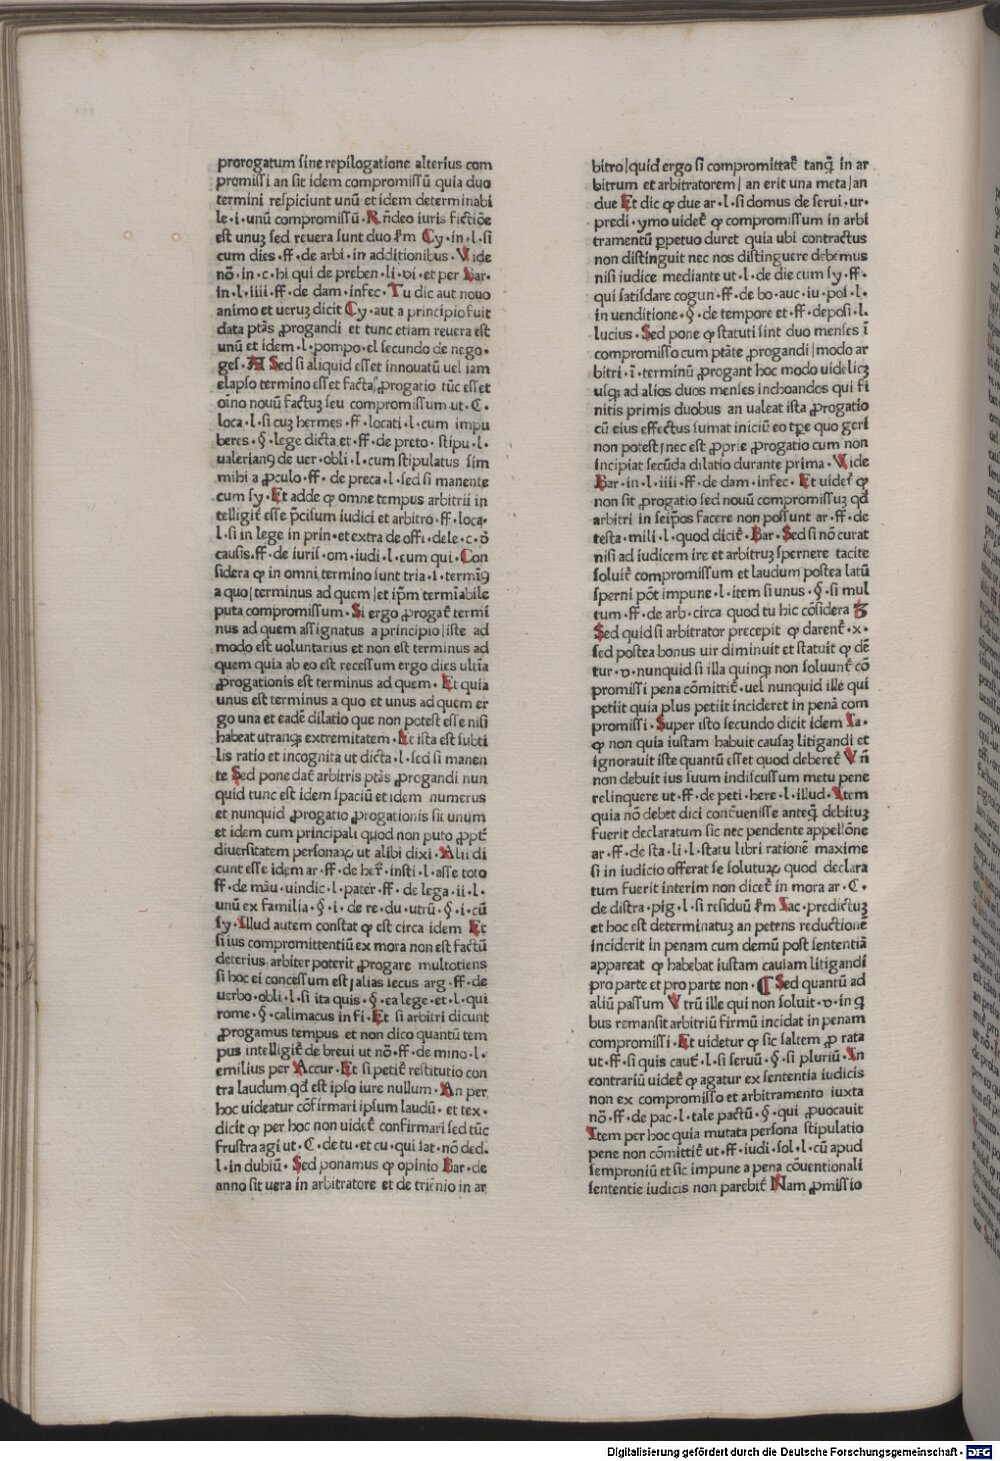 prorogatum sine repilogatione alterius com
promissi an sit idem compromissū quia duo
termini respiciunt unū et idem determinabi
le·i·unū compromissū·Rñdeo iuris fictiōe
est unuȝ sed reuera sunt duo ẜm Cy·in·l·si
cum dies·ff·de arbi·in additionibus·Vide
nō·in·c·hi qui de preben·li·vi·et per Bar·
in·l·iiii·ff·de dam·infec·Tu dic aut nouo
animo et ueruȝ dicit Cy·aut a principio fuit
data ptās ꝓrogandi et tunc etiam reuera est
unū et idem·l·pompo·el secundo de nego·
ges·Al Sed si aliquid esset innouatū uel iam
elapso termino esset facta ꝓrogatio tūc esset
oīno nouū factuȝ seu compromissum ut·C·
loca·l·si cuȝ hermes·ff·locati·l·cum impu
beres·§·lege dicta et·ff·de preto·stipu·l·
ualerianꝰ de uer·obli·l·cum stipulatus sim
mihi a ꝓculo·ff·de preca·l·sed si manente
cum sy·Et adde ꝙ omne tempus arbitrii in
telligiť esse p̄cisum iudici et arbitro·ff·loca·
l·si in lege in prin·et extra de offi·dele·c·ō
causis·ff·de iuris·om·iudi·l·cum qui·Con
sidera ꝙ in omni termino sunt tria·i·termīꝰ
a quo|terminus ad quem|et ip̄m termiabile
puta compromissum·Si ergo ꝓrogať termi
nus ad quem assignatus a principio|iste ad
modo est uoluntarius et non est terminus ad
quem quia ab eo est recessum ergo dies ultīa
ꝓrogationis est terminus ad quem·Et quia
unus est terminus a quo et unus ad quem er
go una et eadē dilatio que non potest esse nisi
habeat utranqꝫ extremitatem·Et ista est subti
lis ratio et incognita ut dicta·l·sed si manen
te Sed pone dať arbitris ptās ꝓrogandi nun
quid tunc est idem spaciū et idem numerus
et nunquid ꝓrogatio ꝓrogationis sit unum
et idem cum principali quod non puto ꝓpť
diuersitatem personaꝝ ut alibi dixi·Alii di
cunt esse idem ar·ff·de heř·insti·l·asse toto
ff·de māu·uindic·l·pater·ff·de lega·ii·l·
unū ex familia·§·i·de re·du·utrū·§·i·cū
sy·Illud autem constat ꝙ est circa idem Et
si ius compromittentiū ex mora non est factū
deterius arbiter poterit ꝓrogare multotiens
si hoc ei concessum est|alias secus arg·ff·de
uerbo·obli·l·si ita quis·§·ea lege·et·l·qui
rome·§·calimacus in fi·Et si arbitri dicunt
ꝓrogamus tempus et non dico quantū tem
pus intelligiť de breui ut nō·ff·de mino·l·
emilius per Accur·Et si petiť restitutio con
tra laudum qď est ipso iure nullum·An per
hoc uideatur cōfirmari ipsum laudū·et tex·
dicit ꝙ per hoc non uideť confirmari sed tūc
frustra agi ut·C·de tu·et cu·qui sat·nō ded·
l·in dubiū·Sed ponamus ꝙ opinio Bar·de
anno sit uera in arbitratore et de triēnio in ar
bitro|quid ergo si compromittať tanqꝫ in ar
bitrum et arbitratorem|an erit una meta|an
due Et dic ꝙ due ar·l·si domus de serui·ur·
predi·ymo uideť ꝙ compromissum in arbi
tramentū ꝑpetuo duret quia ubi contractus
non distinguit nec nos distinguere debemus
nisi iudice mediante ut·l·de die cum sy·ff·
qui satisdare cogun·ff·de bo·auc·iu·pos·l·
in uenditione·§·de tempore et·ff·deposi·l·
lucius·Sed pone ꝙ statuti sint duo menses ī
compromisso cum ptāte ꝓrogandi|modo ar
bitri·ī·terminū ꝓrogant hoc modo uidelicȝ
usqꝫ ad alios duos menses inchoandos qui fi
nitis primis duobus an ualeat ista ꝓrogatio
cū eius effectus sumat iniciū eo tꝑe quo geri
non potest|nec est ꝓprie ꝓrogatio cum non
incipiat secūda dilatio durante prima·Vide
Bar·in·l·iiii·ff·de dam·infec·Et uideť ꝙ
non sit ꝓrogatio sed nouū compromissuȝ qď
arbitri in seip̄os facere non possunt ar·ff·de
testa·mili·l·quod diciť·Bar·Sed si nō curat
nisi ad iudicem ire et arbitruȝ spernere tacite
soluiť compromissum et laudum postea latū
sperni pōt impune·l·item si unus·§·si mul
tum·ff·de arb·circa quod tu hic cōsidera ꝫ
Sed quid si arbitrator precepit ꝙ darenť·x·
sed postea bonus uir diminuit et statuit ꝙ dē
tur·v·nunquid si illa quinqꝫ non soluunť cō
promissi pena cōmittiť·uel nunquid ille qui
petiit quia plus petiit incideret in penā com
promissi·Super isto secundo dicit idem Ia·
ꝙ non quia iustam habuit causaȝ litigandi et
ignorauit iste quantū esset quod debereť Vñ
non debuit ius suum indiscussum metu pene
relinquere ut·ff·de peti·here·l·illud·Item
quia nō debet dici contēuenisse anteqꝫ debituȝ
fuerit declaratum sic nec pendente appellōne
ar·ff·de sta·li·l·statu libri rationē maxime
si in iudicio offerat se solutuꝝ quod declara
tum fuerit interim non diceť in mora ar·C·
de distra·pig·l·si residuū ẜm Iac·predictuȝ
et hoc est determinatuȝ an petens reductionē
inciderit in penam cum demū post sententiā
appareat ꝙ habebat iustam causam litigandi
pro parte et pro parte non·¶ Sed quantū ad
aliū passum Vtrū ille qui non soluit·v·in qͥ
bus remansit arbitriū firmū incidat in penam
compromissi·Et uidetur ꝙ sic saltem ꝓ rata
ut·ff·si quis cauť·l·si seruū·§·si pluriū·In
contrariū uideť ꝙ agatur ex sententia iudicis
non ex compromisso et arbitramento iuxta
nō·ff·de pac·l·tale pactū·§·qui ꝓuocauit
Item per hoc quia mutata persona stipulatio
pene non cōmittiť ut·ff·iudi·sol·l·cū apud
semproniū et sic impune a pena cōuentionali
sententie iudicis non parebiť Nam ꝓmissio
Digitalisierung gefördert durch die Deutsche Forschungsgemeinschaft · DFG